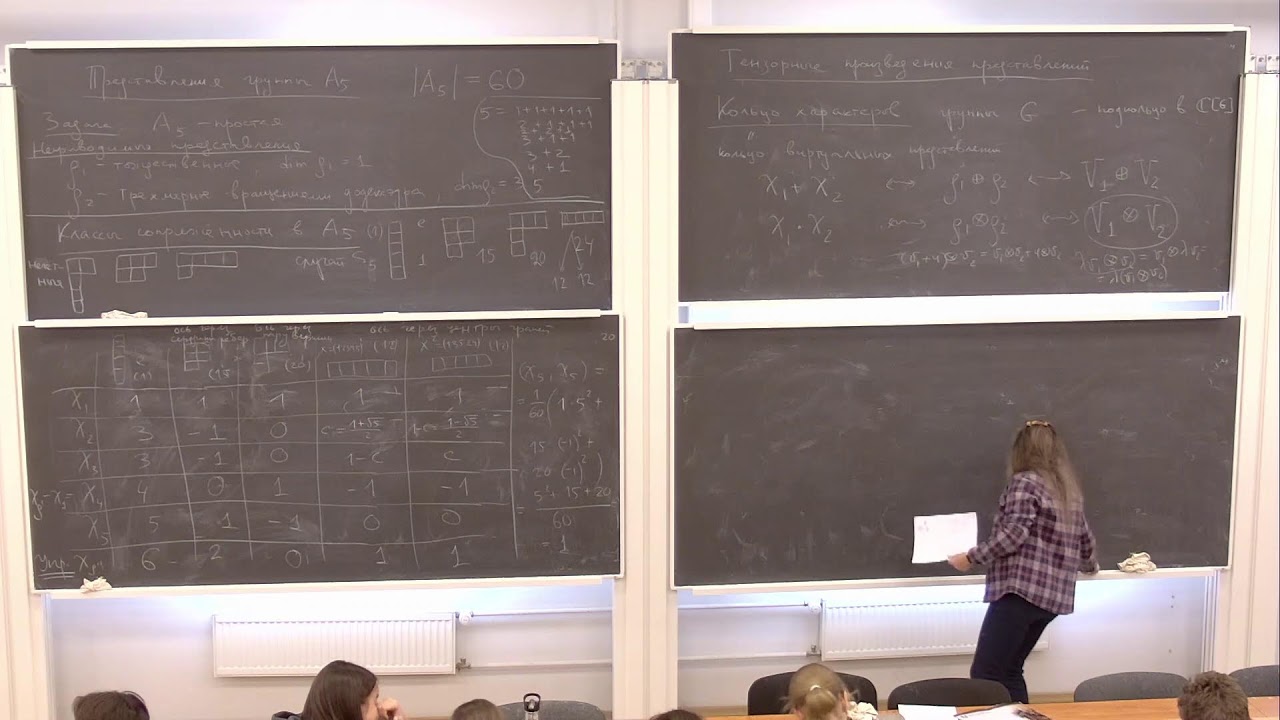 Представления группы A₅ |A₅| = 60
Задача A₅ - простая
Неприводимые представления
ρ₁ - тождественное, dim ρ₁ = 1
ρ₂ - Трёхмерное вращениями додекаэдра, dim ρ₂ = 3
5 = 1+1+1+1+1
2+1+1+1
2+2+1
3+1+1
3+2
4+1
5
Классы сопряжённости в A₅ (1) e
1 15 20 24
12 12
нечет-
ные
случай S₅
ось через ось через ось через центры граней
середины рёбер вершины
(1) (15 (20) (12) (12)
χ₁ 1 1 1 1 1
χ₂ 3 -1 0 c = 1+√5/2 1-c = 1-√5/2
χ₃ 3 -1 0 1-c c
χ₄ 4 0 1 -1 -1
χ₅ 5 1 -1 0 0
Упр. 6 -2 0 1 1
(χ₅, χ₅) =
= 1/60 (1·5² +
15·(-1)² +
20·(-1)²)
= 5²+15+20/60
= 1
Тензорные произведения представлений
Кольцо характеров группы G - подкольцо в ℂ[G]
кольцо виртуальных представлений
χ₁ + χ₂ ↔ ρ₁ ⊕ ρ₂ ↔ V₁ ⊕ V₂
χ₁ · χ₂ ↔ ρ₁ ⊗ ρ₂ ↔ V₁ ⊗ V₂